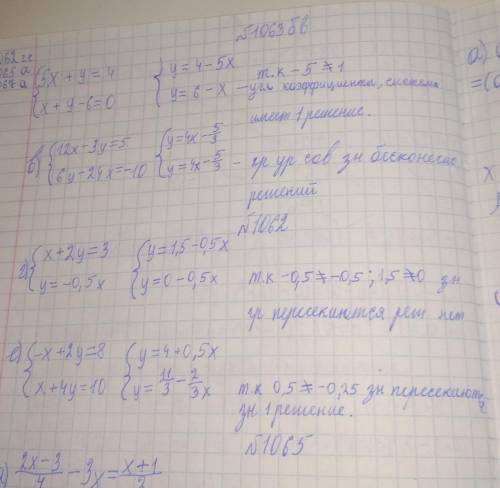 №1063бв
062 г е
065 а
067 а
{5x + y = 4 {y = 4 - 5x т.к -5 ≠ 1
{x + y - 6 = 0 {y = 6 - x - угл коэффициенты, система
имеет 1 решение.
б) {12x - 3y = 5 {y = 4x - 5/3
{6y - 24x = -10 {y = 4x - 5/3 - гр ур сов зн бесконечно
решений
№1062
г) {x + 2y = 3 {y = 1,5 - 0,5x
{y = -0,5x {y = 0 - 0,5x т.к -0,5 ≠ -0,5; 1,5 ≠ 0 зн
гр пересекаются реш нет
е) {-x + 2y = 8 {y = 4 + 0,5x
{x + 4y = 10 {y = 11/3 - 2/3x т.к 0,5 ≠ -0,25 зн пересекают
зн 1 решение.
№1065
) (2x - 3)/4 - 3x = (x + 1)/2
а)
=(
x